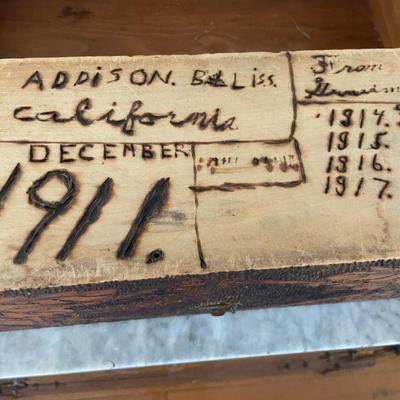 ADDISON. BLISS.
California
DECEMBER
1911.
From
1914.
1915.
1916.
1917.